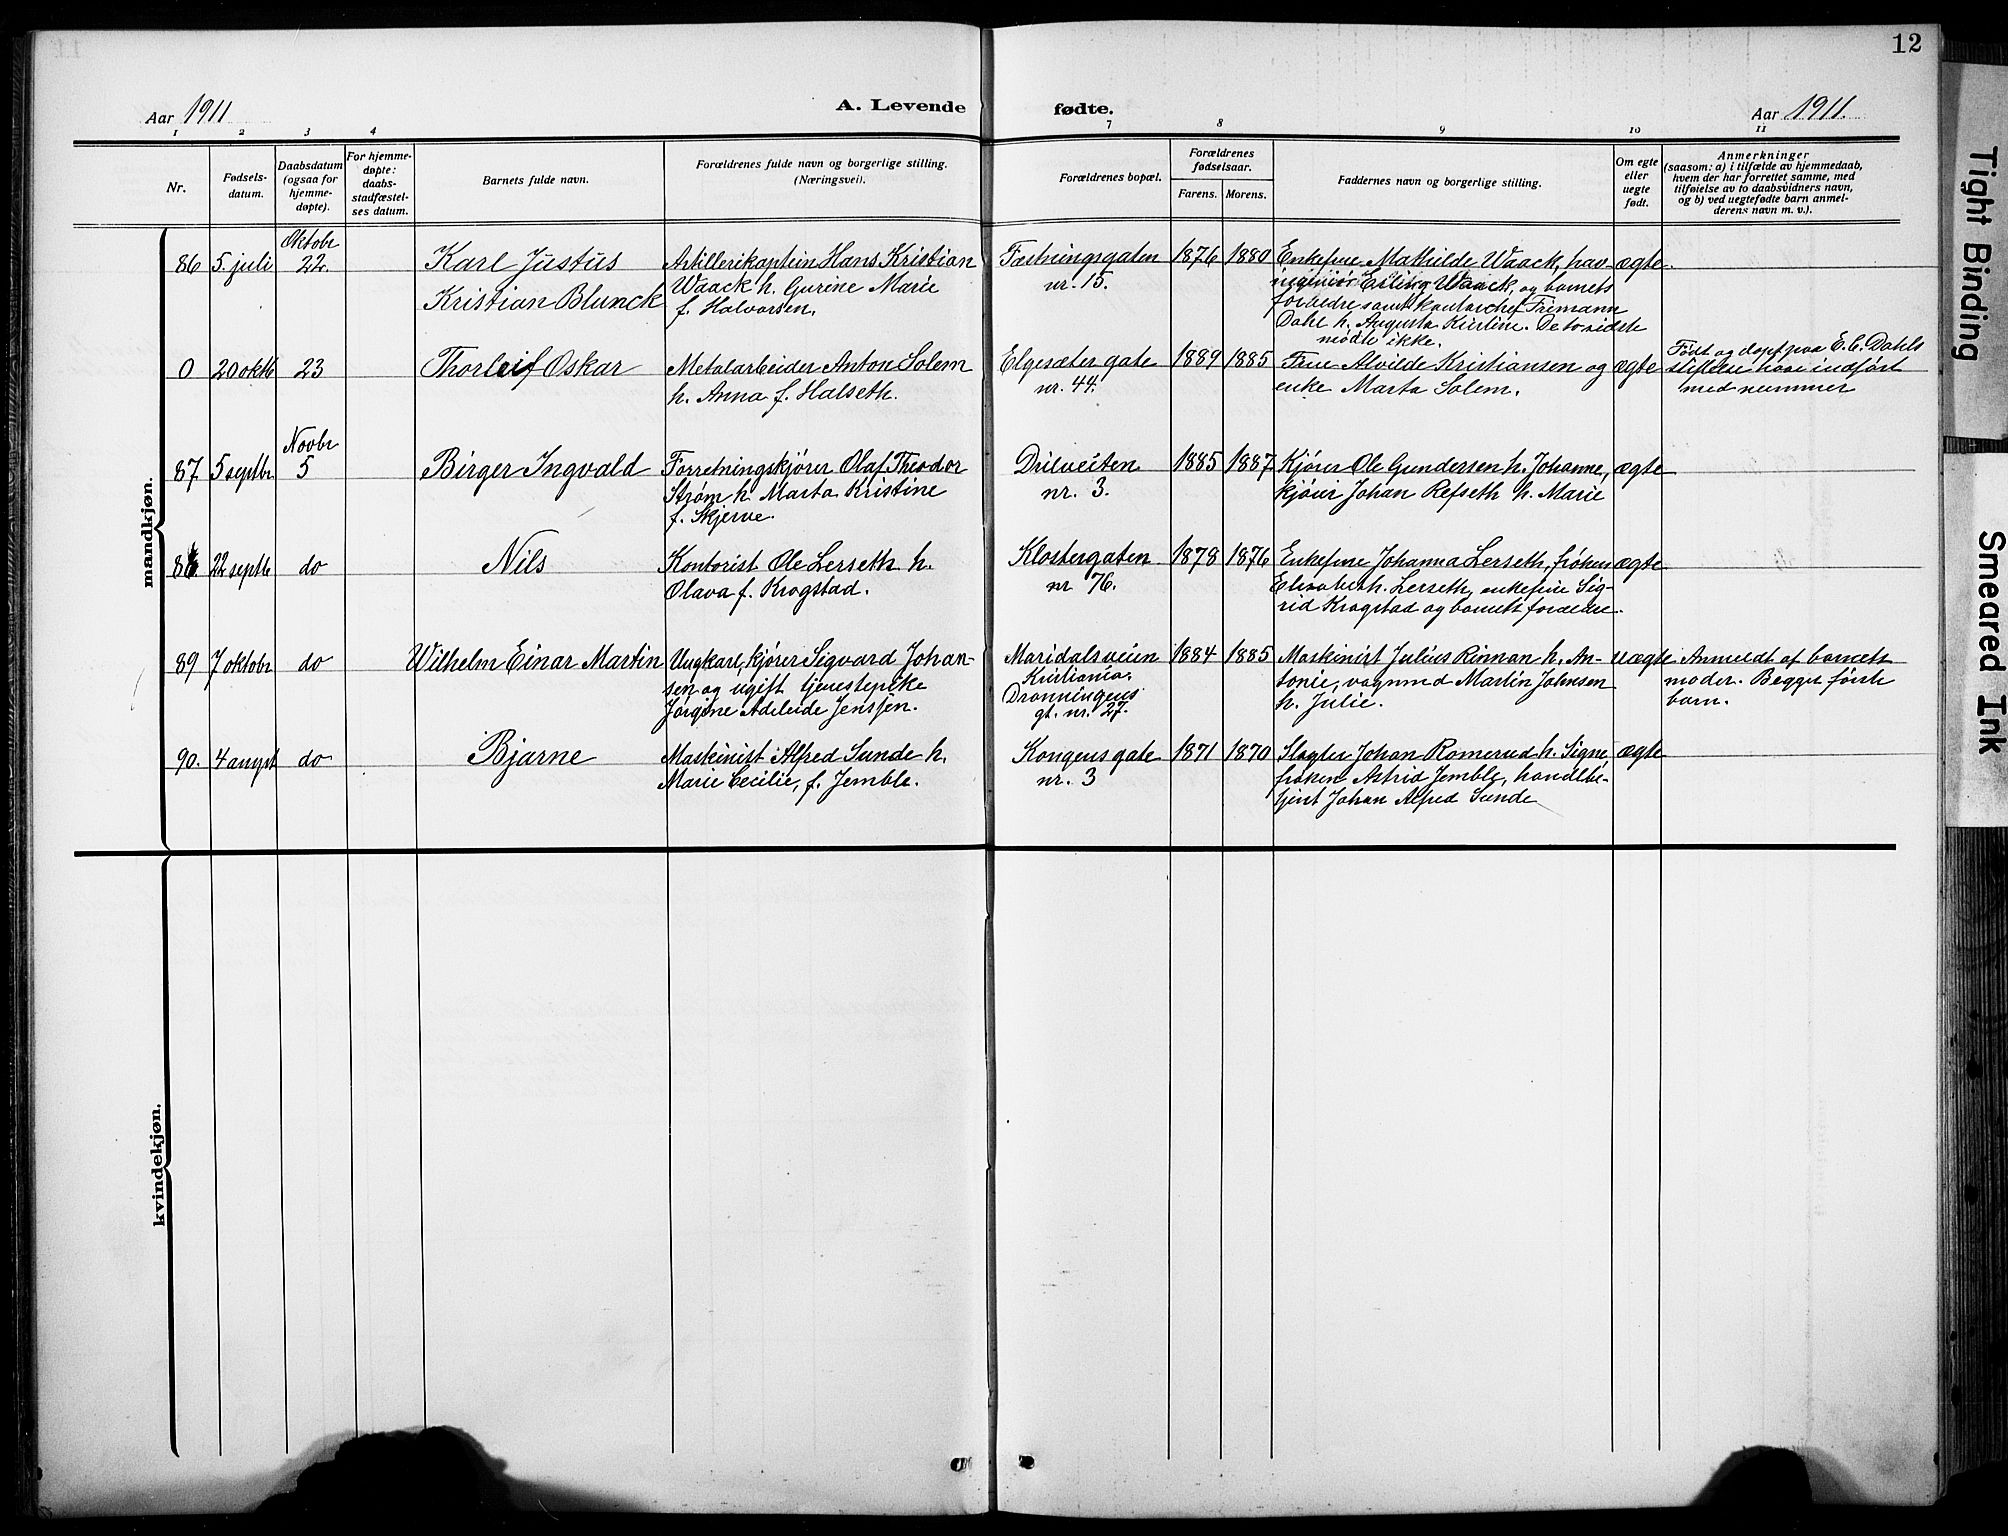 12
Aar 1911
A. Levende fødte.
Aar 1911.
1 2 3 4 7 8 9 10 11
Nr.
Fødsels-
datum.
Daabsdatum
(ogsaa for
hjemme-
døpte).
For hjemme-
døpte:
daabs-
stadfæstel-
ses datum.
Barnets fulde navn.
Forældrenes fulde navn og borgerlige stilling.
(Næringsvei).
Forældrenes bopæl.
Forældrenes
fødselsaar.
Farens. Morens.
Faddernes navn og borgerlige stilling.
Om egte
eller
uegte
født.
Anmerkninger
(saasom: a) i tilfælde av hjemmedaab,
hvem der har forrettet samme, med
tilføielse av to daabsvidners navn,
og b) ved uegtefødte barn anmel-
derens navn m. v.).
mandkjøn.
86 5. juli
Oktobr
22.
Karl Justus
Kristian Blunck
Artillerikaptein Hans Kristian
Waack h. Gurine Marie
f. Halvorsen.
Fæstningsgaten
nr. 15.
1876 1880
Enkefrue Mathilde Waack, hav-
ingeniør Erling Waack, og barnets
forældre samt kontorchef Fremann
Dahl h. Augusta Kirstine. De to sidste
mødte ikke.
ægte.
0 20 oktb 23
Thorleif Oskar
Metalarbeider Anton Solem
h. Anna f. Halseth.
Elgesæter gate
nr. 44.
1889 1885
Frue Alvilde Kristiansen og
enke Marta Solem.
ægte
Født og døpt paa E. C. Dahls
stiftelse hvor indført
med nummer
87. 5 septbr.
Novbr
5
Birger Ingvald
Forretningskjører Olaf Theodor
Strøm h. Marta Kristine
f. Skjerve.
Drilveiten
nr. 3.
1885 1887
Kjører Ole Gundersen h. Johanne,
kjører Johan Refseth h. Marie
ægte
22 septb do
Nils
Kontorist Ole Lerseth h.
Olava f. Krogstad.
Klostergaten
nr 76.
1878 1876
Enkefrue Johanna Lerseth, frøken
Elisabeth Lerseth, enkefrue Sig-
rid Krogstad og barnets forældre.
ægte
89 7 oktobr do
Wilhelm Einar Martin
Ungkarl, kjører Sigvard Johan-
sen og ugift tjenestepike
Jørgine Adeleide Jenssen.
Maridalsveien
Kristiania.
Dronningens
gt. nr. 27.
1884 1885
Maskinist Julius Rinnan h. An-
tonie, vognmd Martin Johnsen
h. Julie.
uægte
Anmeldt af barnets
moder. Begges første
barn.
90. 4 august do
Bjarne
Maskinist Alfred Sunde h.
Marie Cecilie, f. Jemble.
Kongens gate
nr. 3
1871 1870
Slagter Johan Romerud h. Signe,
frøken Astrid Jemble, handelsbe-
tjent Johan Alfred Sunde
ægte
kvindekjøn.
Tight Binding
Smeared Ink